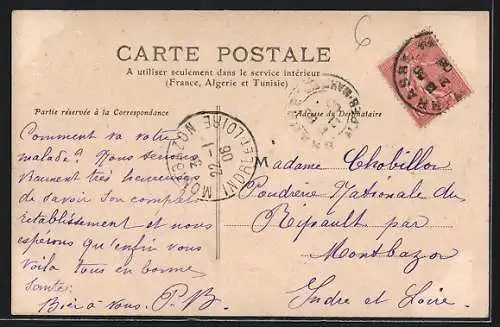 6
CARTE POSTALE
A utiliser seulement dans le service intérieur
(France, Algerie et Tunisie)
Partie réservée à la Correspondance
Adresse du Destinataire
Comment va votre
malade? Nous serions
vraiment très heureuses
de savoir son complet
établissement et nous
espérons qu'enfin vous
voilà tous en bonne
santé.
Bien à vous. P. B.
M
Madame Chobillon
Poudrerie Nationale du
Ripault par
Montbazon
Indre et Loire.
INDRE-ET-LOIRE
22 -1
06
GRASSE